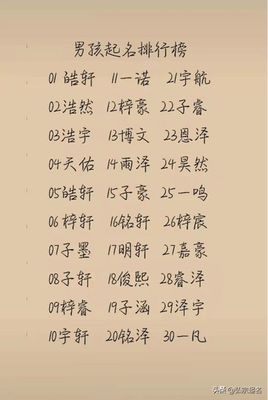 男孩起名排行榜
01 皓轩 11一诺 21宇航
02浩然 12梓豪 22子睿
03浩宇 13博文 23恩泽
04天佑 14雨泽 24昊然
05皓轩 15子豪 25一鸣
06梓轩 16铭轩 26梓宸
07子墨 17明轩 27嘉豪
08子轩 18俊熙 28睿泽
09梓睿 19子涵 29泽宇
10宇轩 20铭泽 30一凡
头条@弘宗起名